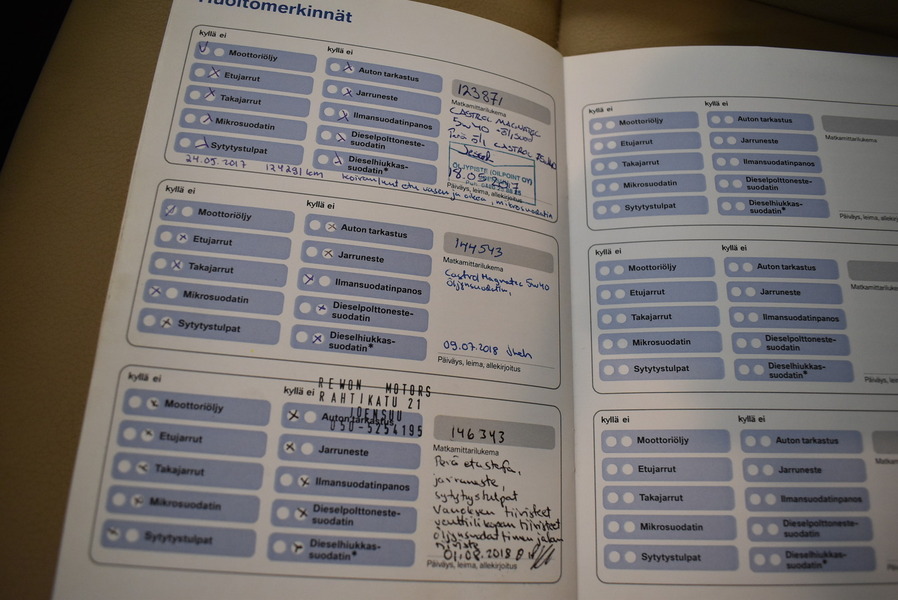 Huoltomerkinnät
kyllä ei
kyllä ei
Moottoriöljy
Auton tarkastus
Etujarrut
Jarruneste
Takajarrut
Ilmansuodatinpanos
Mikrosuodatin
Dieselpolttoneste-
suodatin
Sytytystulpat
Dieselhiukkas-
suodatin*
123871
Matkamittarilukema
CASTROL MAGNATEC
5W40
Perä öli CASTROL
ÖLJYPISTE (OILPOINT OY)
18.05.2017
Päiväys, leima, allekirjoitus
24.05.2017 124291 km
mikrosuodatin
kyllä ei
kyllä ei
Moottoriöljy
Auton tarkastus
Etujarrut
Jarruneste
Takajarrut
Ilmansuodatinpanos
Mikrosuodatin
Dieselpolttoneste-
suodatin
Sytytystulpat
Dieselhiukkas-
suodatin*
144543
Matkamittarilukema
Castrol Magnatec 5w40
Öljynsuodatin,
09.07.2018
Päiväys, leima, allekirjoitus
kyllä ei
kyllä ei
REWON MOTORS
RAHTIKATU 21
JOENSUU
050-5254195
Moottoriöljy
Auton tarkastus
Etujarrut
Jarruneste
Takajarrut
Ilmansuodatinpanos
Mikrosuodatin
Dieselpolttoneste-
suodatin
Sytytystulpat
Dieselhiukkas-
suodatin*
146343
Matkamittarilukema
jarruneste,
sytytystulpat
tiivisteet
venttiilikopan tiivisteet
öljynsuodattimen jalan
tiiviste
01.08.2018
Päiväys, leima, allekirjoitus
kyllä ei
kyllä ei
Moottoriöljy
Auton tarkastus
Etujarrut
Jarruneste
Takajarrut
Ilmansuodatinpanos
Mikrosuodatin
Dieselpolttoneste-
suodatin
Sytytystulpat
Dieselhiukkas-
suodatin*
Matkamittarilukema
Päiväys, leima,
kyllä ei
kyllä ei
Moottoriöljy
Auton tarkastus
Etujarrut
Jarruneste
Takajarrut
Ilmansuodatinpanos
Mikrosuodatin
Dieselpolttoneste-
suodatin
Sytytystulpat
Dieselhiukkas-
suodatin*
kyllä ei
kyllä ei
Moottoriöljy
Auton tarkastus
Etujarrut
Jarruneste
Takajarrut
Ilmansuodatinpanos
Mikrosuodatin
Dieselpolttoneste-
suodatin
Sytytystulpat
Dieselhiukkas-
suodatin*